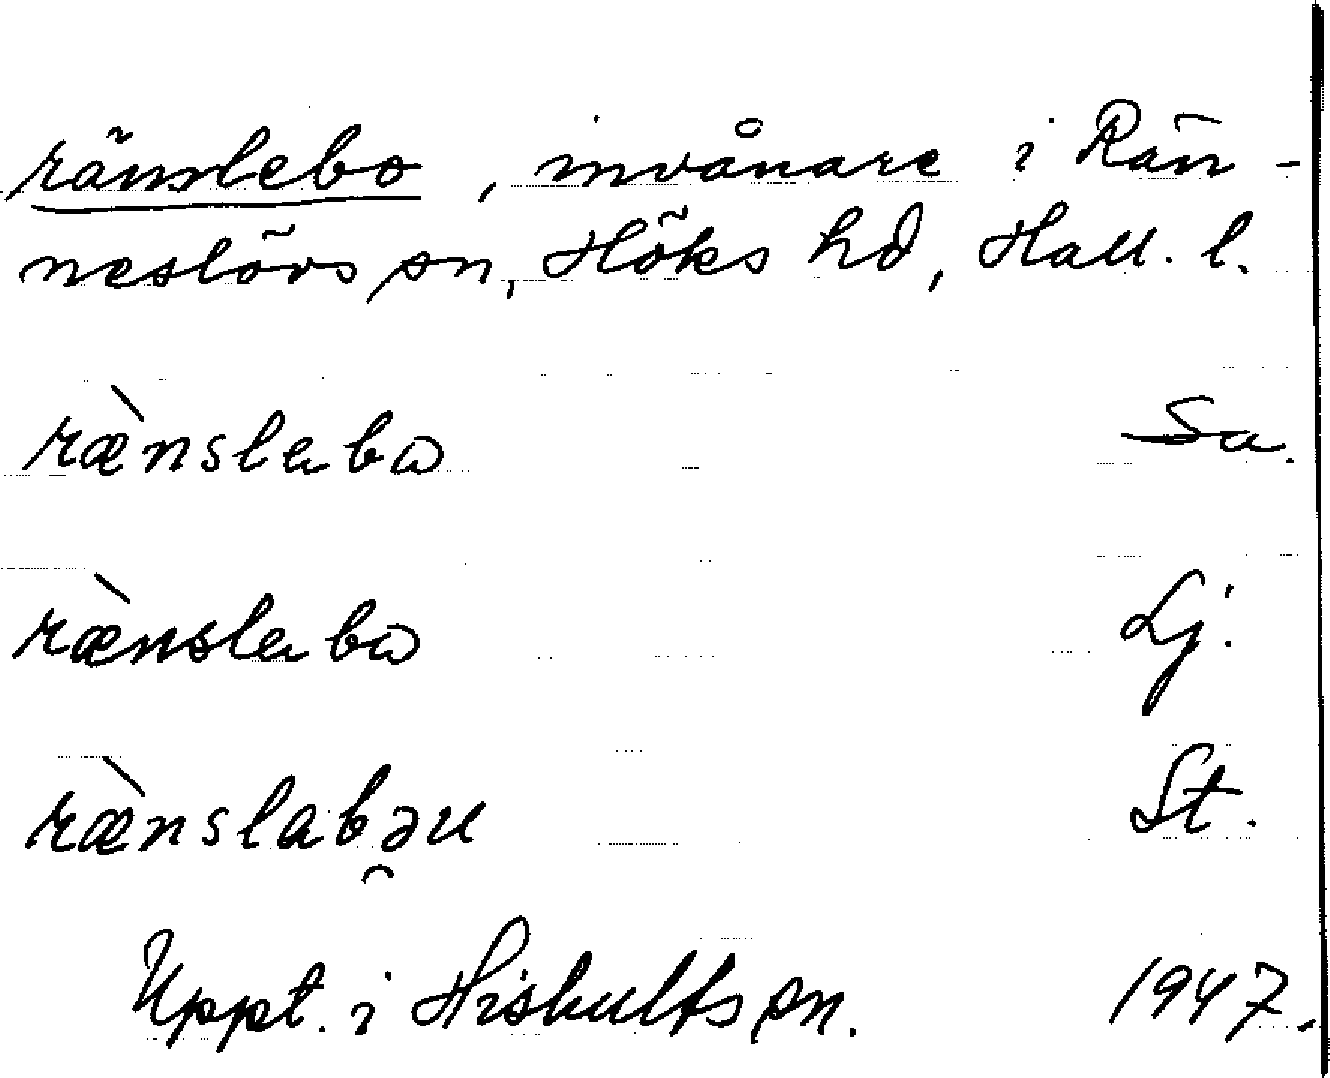 ränslebo, invånare i Rän-
neslövs sn, Höks hd, Hall. l.
rænslabω Sa.
rænslabω Lj.
rænslabəu St.
Uppt. i Hishults sn. 1947.